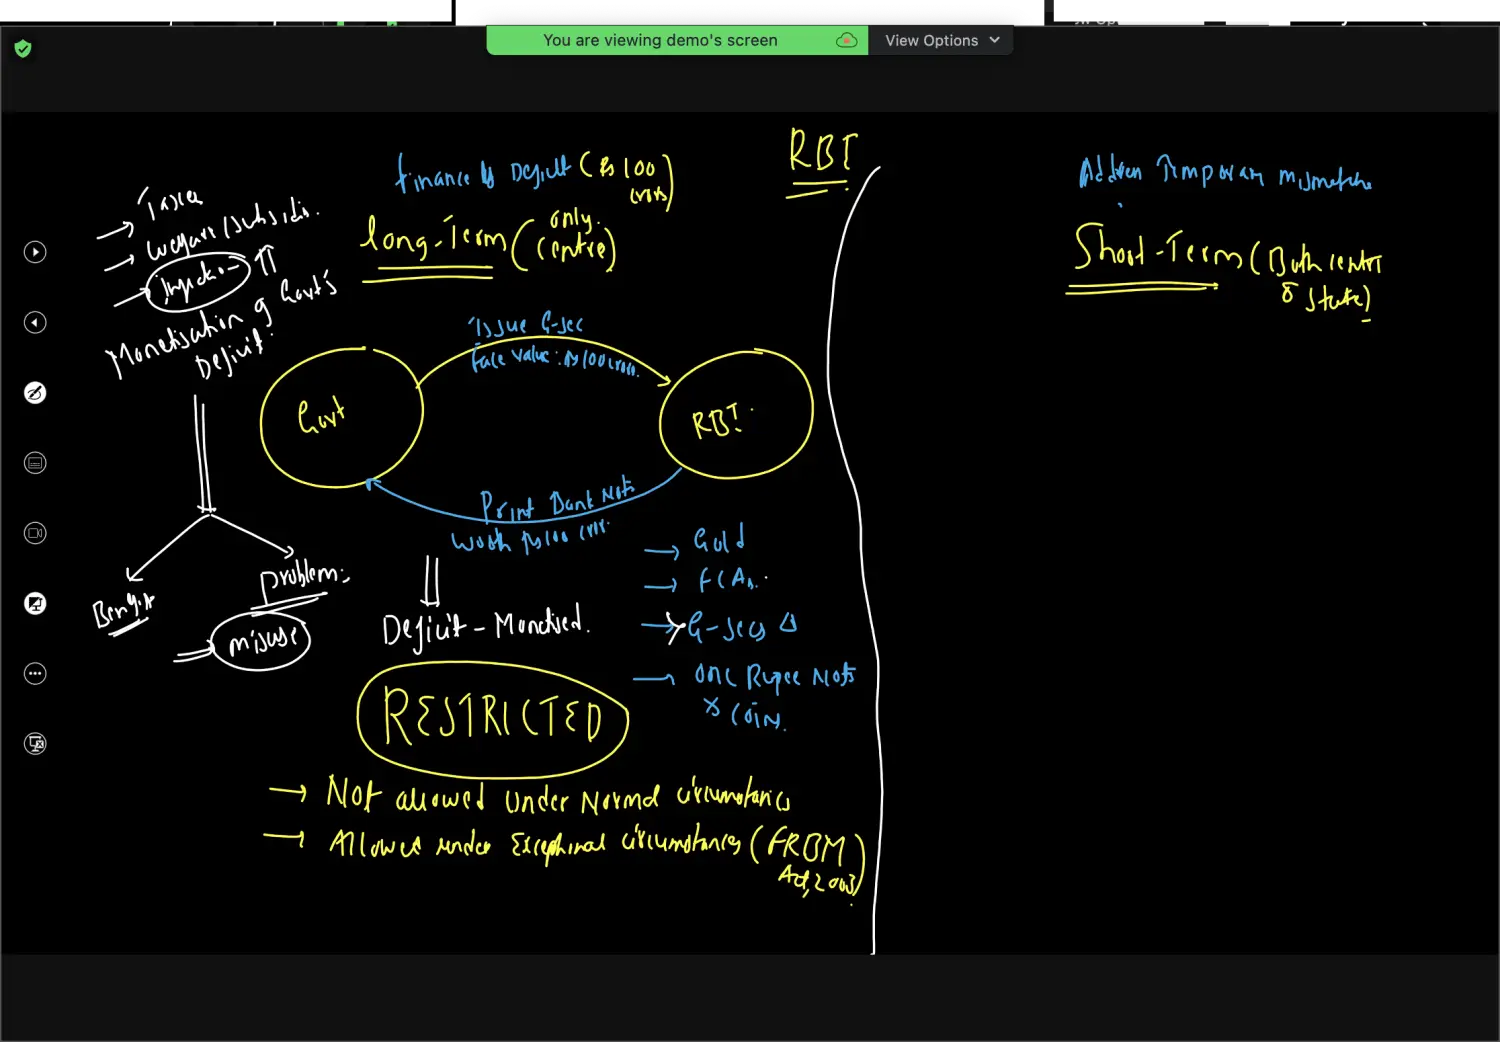 You are viewing demo's screen
View Options
RBI
Finance Deficit (Rs 100
crores)
Long-Term (only
centre)
Taxes
Welfare/subsidies.
Inflation
Monetisation of Govt's
Deficit.
Issue G-sec
Face Value: Rs 100 crores.
Govt
RBI
Print Bank Notes
Worth Rs 100 crores.
Gold
FCAs.
G-secs
One Rupee Notes
& Coins.
Benefit
Problem:
misuse
Deficit-Monetised.
RESTRICTED
Not allowed under Normal circumstances
Allowed under Exceptional circumstances (FRBM
Act, 2003)
Address Temporary mismatches
Short-Term (Both centre
& state)